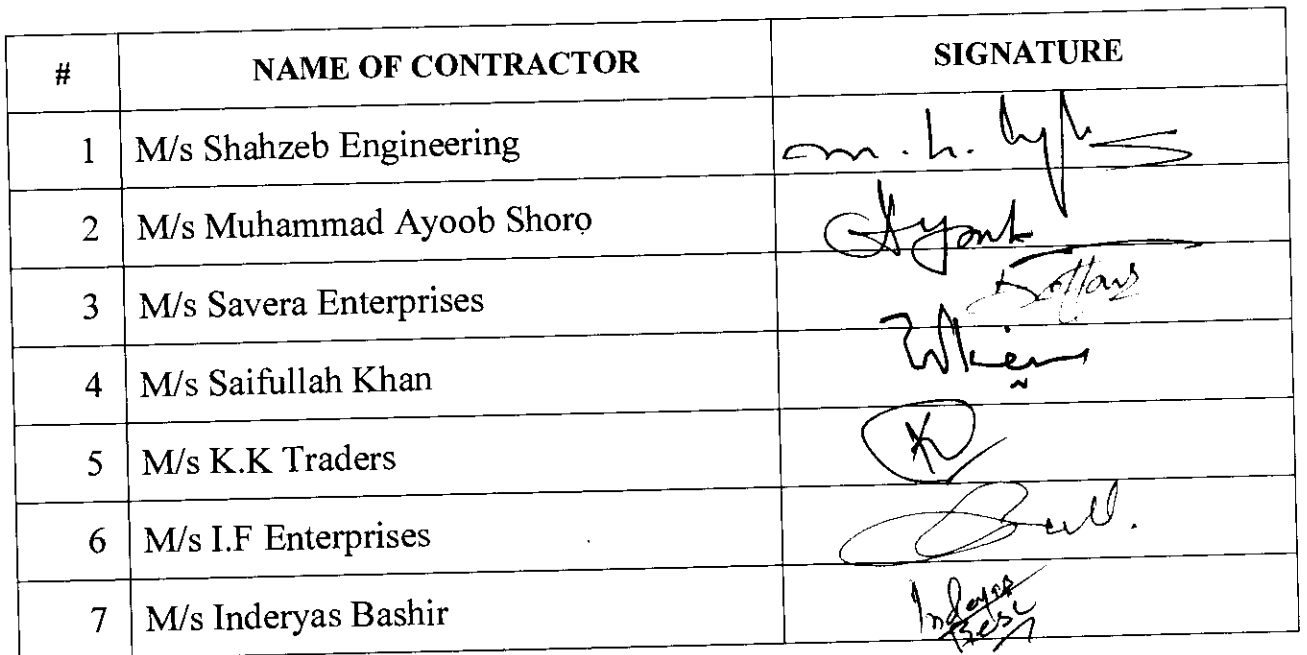 # NAME OF CONTRACTOR SIGNATURE
1 M/s Shahzeb Engineering
2 M/s Muhammad Ayoob Shoro
3 M/s Savera Enterprises
4 M/s Saifullah Khan
5 M/s K.K Traders
6 M/s I.F Enterprises
7 M/s Inderyas Bashir